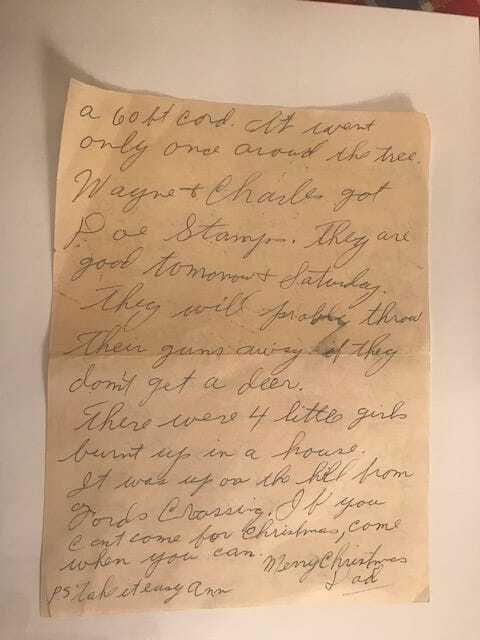 a 60 ft cord. It went
only once aroud the tree.
Wayne + Charles got
Doe Stamps. They are
good tomorrow + Saturday.
They will probly throw
their guns away if they
don't get a deer.
There were 4 little girls
burnt up in a house.
It was up on the hill from
Fords Crossing. If you
cant come for Christmas, come
when you can.
Merry Christmas
Dad
PS. Tak it easy Ann